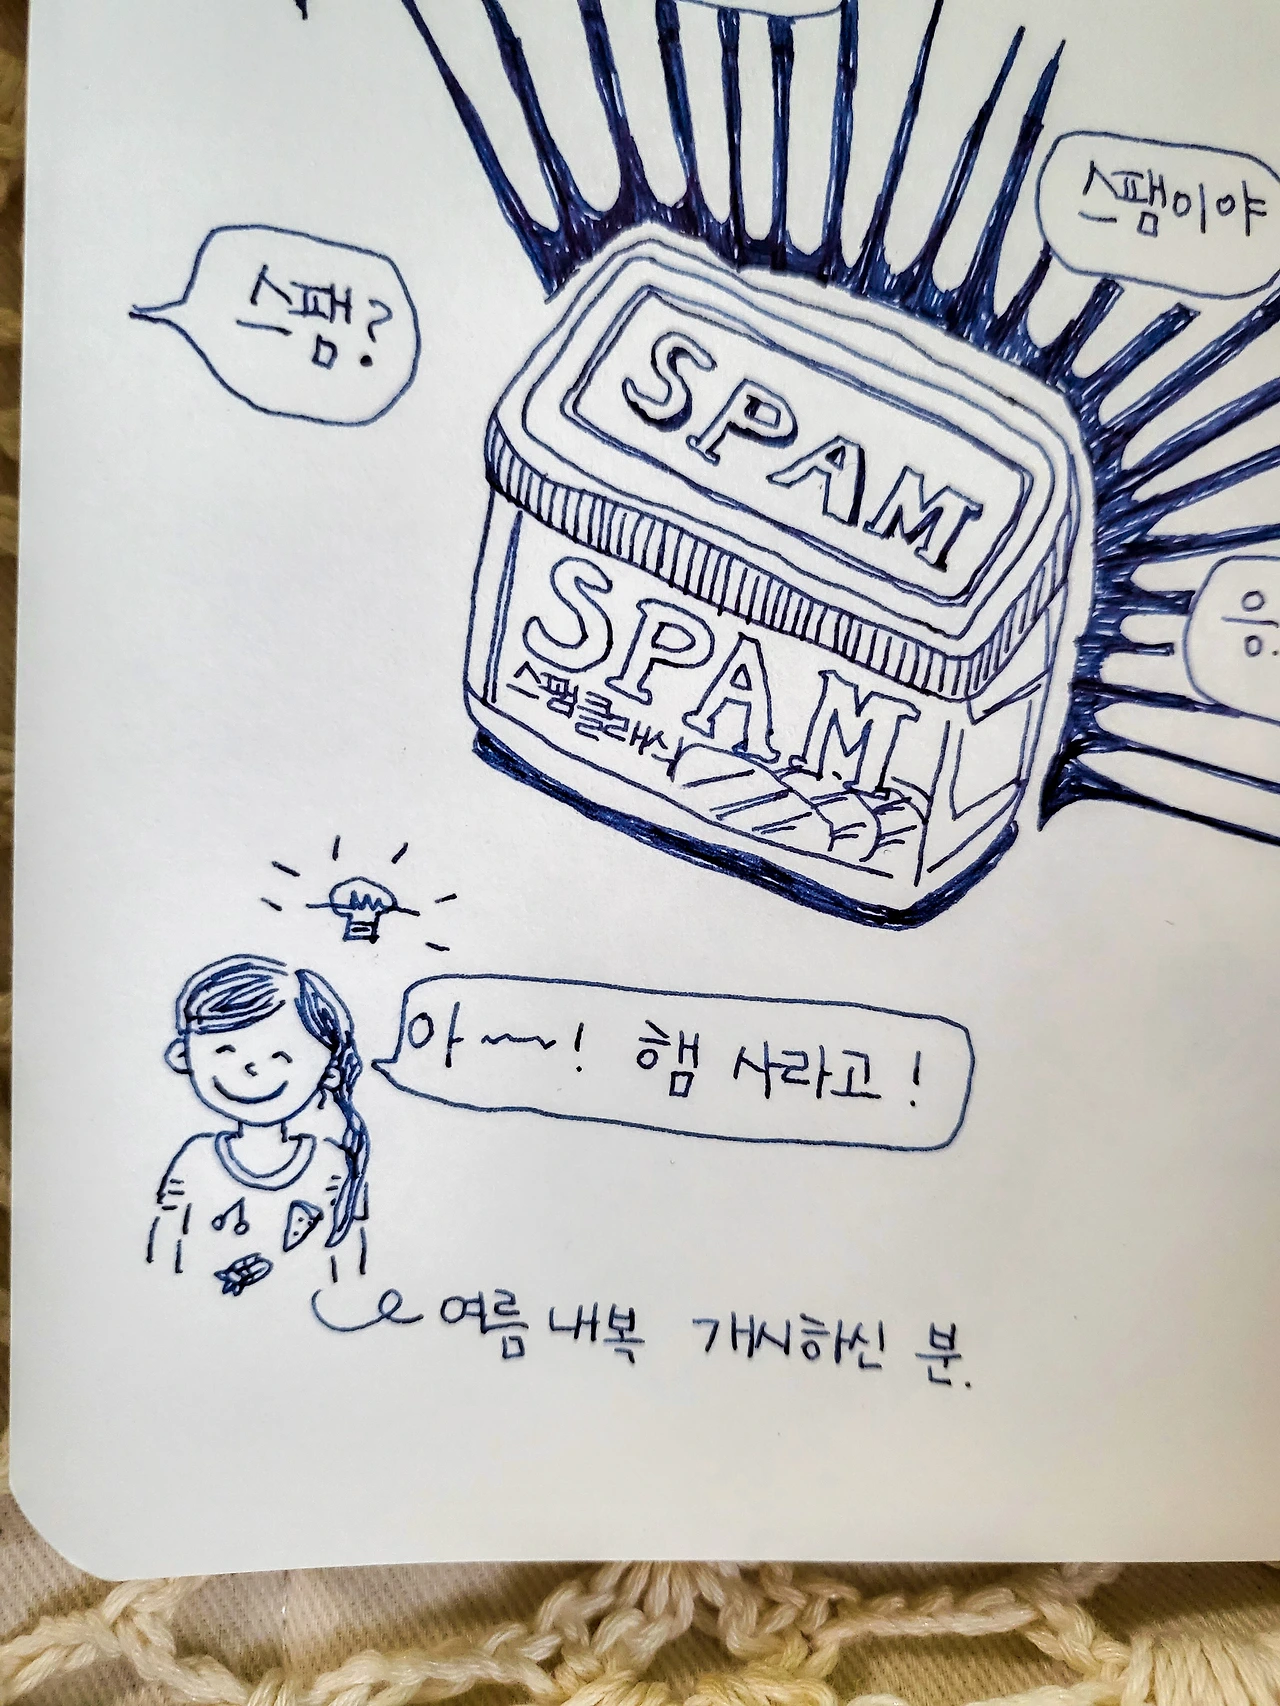 스팸이야
스팸?
SPAM
SPAM
스팸클래식
아~~! 햄 사라고!
여름 내복 개시하신 분.